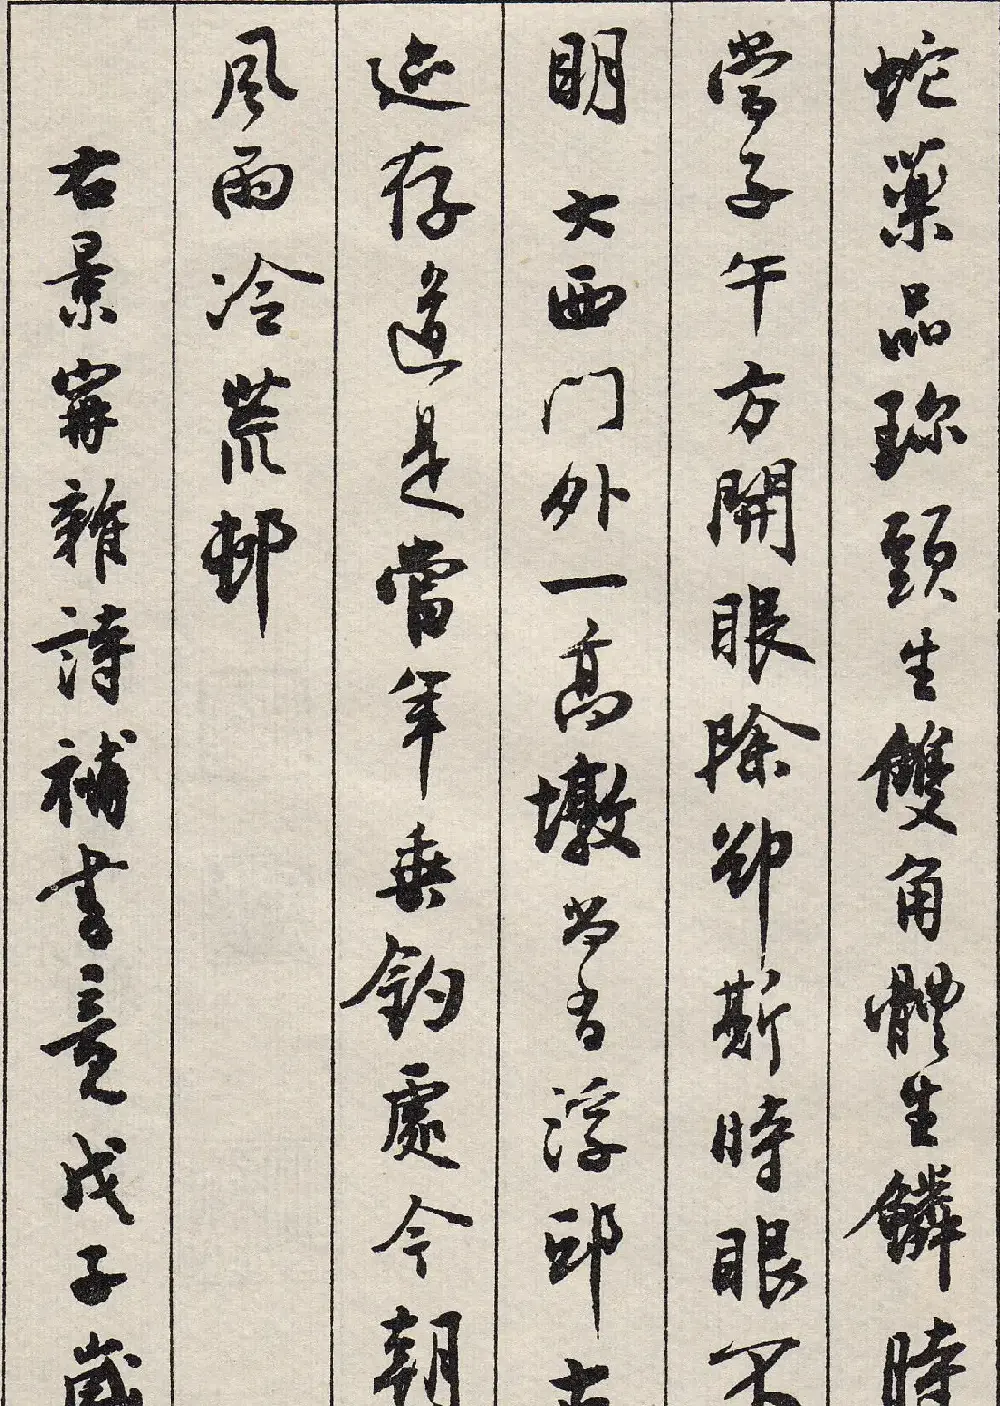 蛇藥品珍頸生雙角體生鱗時
當子午方開眼除卻斯時眼不
明 大西門外一高墩尚有浮邱古
迹存道是當年垂釣處今朝
風雨冷荒邨
右景甯雜詩補書竟戊子歲